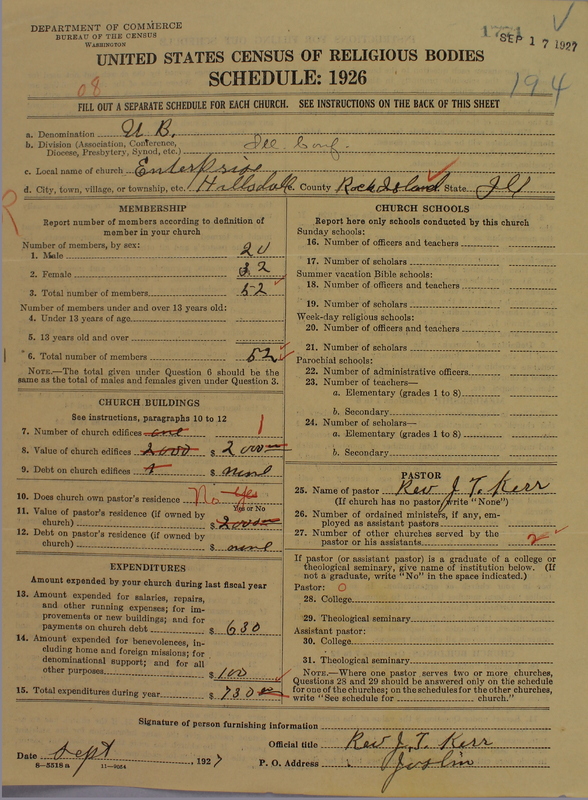 DEPARTMENT OF COMMERCE
BUREAU OF THE CENSUS
WASHINGTON
SEP 17 1927
UNITED STATES CENSUS OF RELIGIOUS BODIES
SCHEDULE: 1926
08
194
FILL OUT A SEPARATE SCHEDULE FOR EACH CHURCH. SEE INSTRUCTIONS ON THE BACK OF THIS SHEET
a. Denomination U B.
b. Division (Association, Conference, Diocese, Presbytery, Synod, etc.) Ill. Conf.
c. Local name of church Enterprise
d. City, town, village, or township, etc. Hillsdale. County Rock Island State Ill
MEMBERSHIP
Report number of members according to definition of
member in your church
Number of members, by sex:
1. Male 20
2. Female 32
3. Total number of members 52
Number of members under and over 13 years old:
4. Under 13 years of age
5. 13 years old and over
6. Total number of members 52
NOTE.—The total given under Question 6 should be
the same as the total of males and females given under Question 3.
CHURCH BUILDINGS
See instructions, paragraphs 10 to 12
7. Number of church edifices one 1
8. Value of church edifices 2000 $ 2000
9. Debt on church edifices $ none
10. Does church own pastor's residence No Yes
Yes or No
11. Value of pastor's residence (if owned by
church) $ 2000
12. Debt on pastor's residence (if owned by
church) $ none
EXPENDITURES
Amount expended by your church during last fiscal year
13. Amount expended for salaries, repairs,
and other running expenses; for im-
provements or new buildings; and for
payments on church debt $ 630
14. Amount expended for benevolences, in-
cluding home and foreign missions; for
denominational support; and for all
other purposes $ 100
15. Total expenditures during year $ 730 00
CHURCH SCHOOLS
Report here only schools conducted by this church
Sunday schools:
16. Number of officers and teachers
17. Number of scholars
Summer vacation Bible schools:
18. Number of officers and teachers
19. Number of scholars
Week-day religious schools:
20. Number of officers and teachers
21. Number of scholars
Parochial schools:
22. Number of administrative officers
23. Number of teachers—
a. Elementary (grades 1 to 8)
b. Secondary
24. Number of scholars—
a. Elementary (grades 1 to 8)
b. Secondary
PASTOR
25. Name of pastor Rev J. T. Kerr
(If church has no pastor, write "None")
26. Number of ordained ministers, if any, em-
ployed as assistant pastors
27. Number of other churches served by the
pastor or his assistants 2
If pastor (or assistant pastor) is a graduate of a college or
theological seminary, give name of institution below. (If
not a graduate, write "No" in the space indicated.)
Pastor: 0
28. College
29. Theological seminary
Assistant pastor:
30. College
31. Theological seminary
NOTE.—Where one pastor serves two or more churches,
Questions 28 and 29 should be answered only on the schedule
for one of the churches; on the schedules for the other churches,
write "See schedule for church."
Signature of person furnishing information
Official title Rev J. T. Kerr
Date Sept, 1927 P. O. Address Joslin
8—5518 a 11—9054